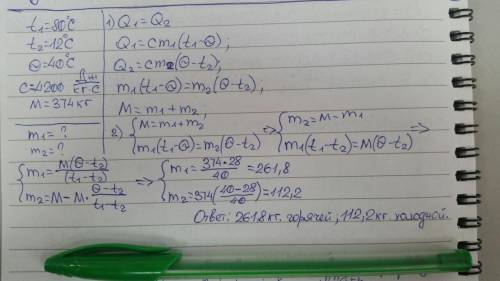 t₁=80°C
t₂=12°C
Θ=40°C
C=4200 Дж/кг·С
M=374 кг
m₁=?
m₂=?
1) Q₁=Q₂
Q₁=cm₁(t₁-Θ);
Q₂=cm₂(Θ-t₂);
m₁(t₁-Θ)=m₂(Θ-t₂);
M=m₁+m₂;
2) {M=m₁+m₂ {m₁(t₁-Θ)=m₂(Θ-t₂) => {m₂=M-m₁ {m₁(t₁-t₂)=M(Θ-t₂) =>
{m₁=M(Θ-t₂)/(t₁-t₂) {m₂=M-M·Θ-t₂/t₁-t₂ => {m₁=374·28/40=261,8 {m₂=374(40-28/40)=112,2
Ответ: 261,8кг. горячей, 112,2кг. холодной.